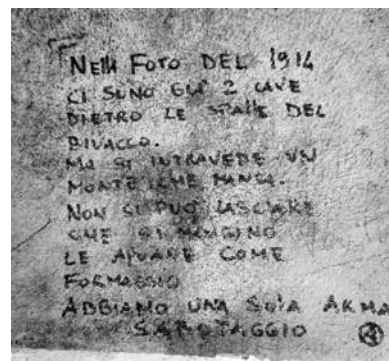 NELLA FOTO DEL 1914
CI SONO GIA' 2 CAVE
DIETRO LE SPALLE DEL
BIVACCO.
MA SI INTRAVEDE UN
MONTE CHE MANCA.
NON SI PUÒ LASCIARE
CHE SI MANGINO
LE APUANE COME
FORMAGGIO
ABBIAMO UNA SOLA ARMA
SABOTAGGIO Ⓐ